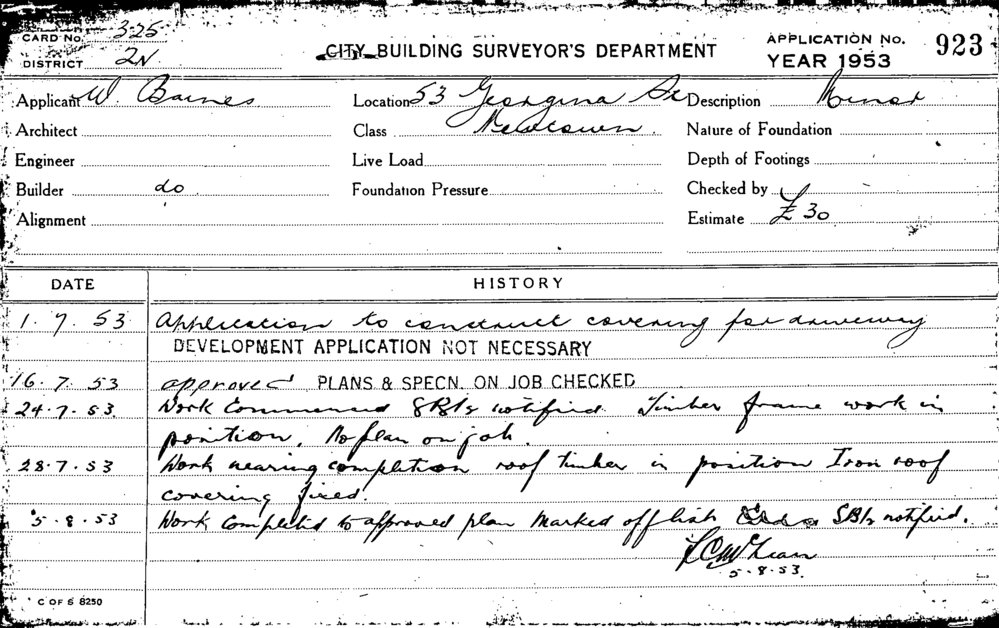 CARD No. 325
DISTRICT 2N
CITY BUILDING SURVEYOR'S DEPARTMENT
APPLICATION No. 923
YEAR 1953
Applicant W. Baines Location 53 Georgina St Description Minor
Architect Class Newtown. Nature of Foundation
Engineer Live Load Depth of Footings
Builder do Foundation Pressure Checked by
Alignment Estimate £30
DATE HISTORY
1.7.53 Application to construct covering for driveway
DEVELOPMENT APPLICATION NOT NECESSARY
16.7.53 approved PLANS & SPECN. ON JOB CHECKED
24.7.53 Work Commenced notified. Timber frame work in
position. No plan on job.
28.7.53 Work nearing completion roof timber in position Iron roof
covering fixed.
5.8.53 Work Completed to approved plan marked off list notified.
5.8.53.
C OF S 8250